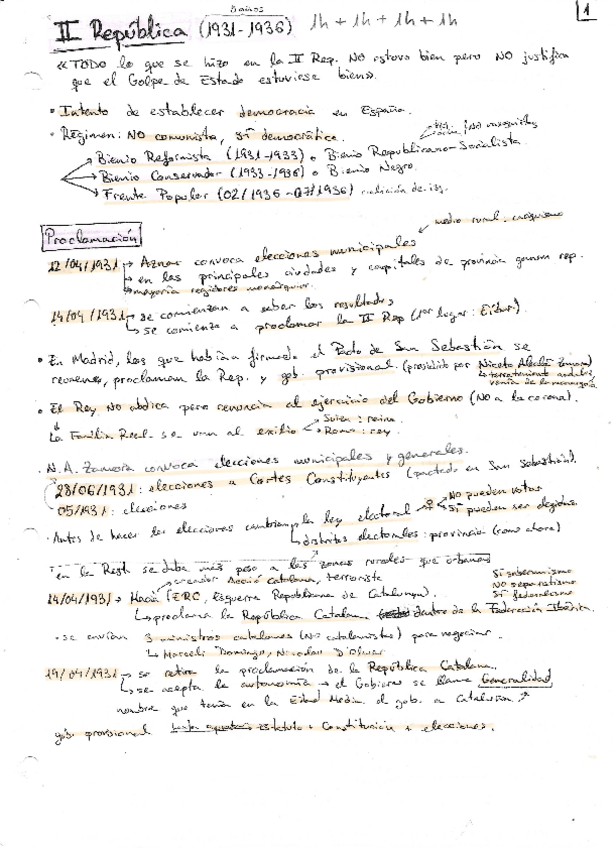 5 años
II República (1931-1936) 1h + 1h + 1h + 1h
1
«TODO lo que se hizo en la II Rep. NO estuvo bien pero NO justifica
que el Golpe de Estado estuviese bien».
• Intento de establecer democracia en España.
• Régimen: NO comunista, sí democrático.
→ Bienio Reformista (1931-1933) o Bienio Republicano-Socialista.
→ Bienio Conservador (1933-1936) o Bienio Negro.
→ Frente Popular (02/1936-07/1936) coalición de izq.
Proclamación
medio rural, caciquismo
12/04/1931 → Aznar convoca elecciones municipales
→ en las principales ciudades y capitales de provincia ganan rep.
→ mayoría regidores monárquicos.
14/04/1931 → se comienzan a saber los resultados
→ se comienza a proclamar la II Rep (1er lugar: Eibar)
• En Madrid, los que habían firmado el Pacto de San Sebastián se
reúnen, proclaman la Rep. y gob. provisional (presidido por Niceto Alcalá Zamora)
↳ terrateniente andaluz,
venía de la monarquía
• El Rey NO abdica pero renuncia al ejercicio del Gobierno (NO a la corona).
↓
La Familia Real se va al exilio → Suiza: reina
→ Roma: rey
• N.A. Zamora convoca elecciones municipales y generales.
28/06/1931: elecciones a Cortes Constituyentes (pactado en San Sebastián).
05/1931: elecciones
• Antes de hacer las elecciones cambian → la ley electoral → ♀ → NO pueden votar
→ SÍ pueden ser elegidas
→ distritos electorales: provincia (como ahora)
en la Rest. se daba más peso a las zonas rurales que urbanas
creador Acció Catalana, terrorista
14/04/1931 → Macià (ERC, Esquerra Republicana de Catalunya).
Sí soberanismo
NO separatismo
Sí federalismo
↳ proclama la República Catalana dentro de la Federación Ibérica.
• se envían 3 ministros catalanes (NO catalanistas) para negociar.
↳ Marcelí Domingo, Nicolau D'Olwer
19/04/1931 → se retira la proclamación de la República Catalana.
→ se acepta la autonomía → el Gobierno se llame Generalidad
nombre que tenía en la Edad Media el gob. a Cataluña.
gob. provisional Estatuto + Constitución + elecciones.